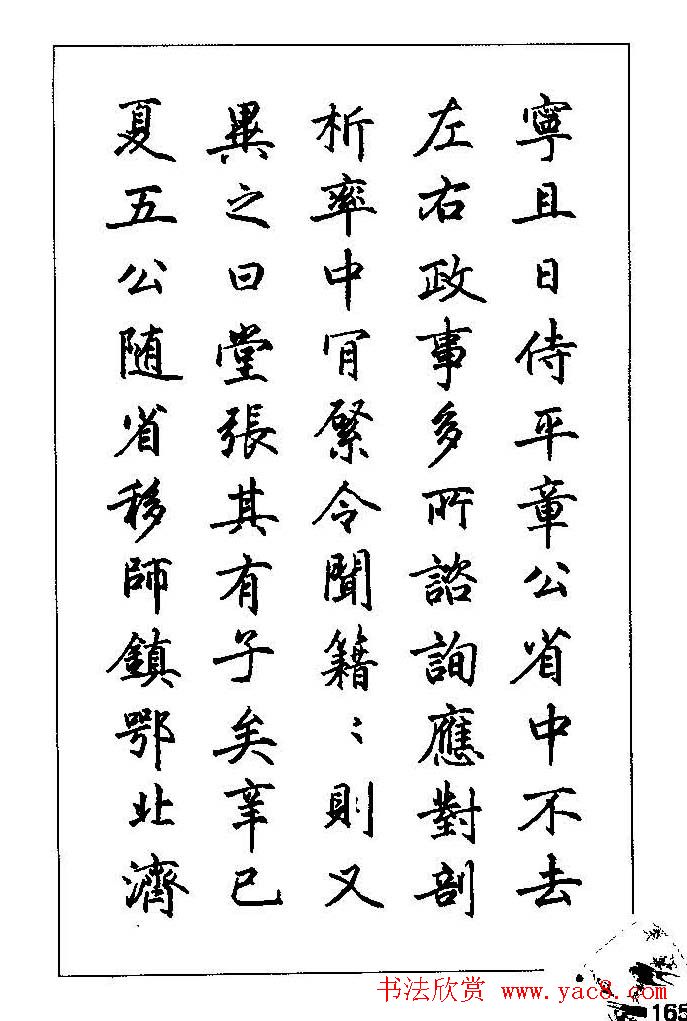 寧且日侍平章公省中不去
左右政事多所諮詢應對剖
析率中肎綮令聞籍〻則又
異之曰堂張其有子矣辛巳
夏五公随省移師鎮鄂北濟
书法欣赏 www.yac8.com
165